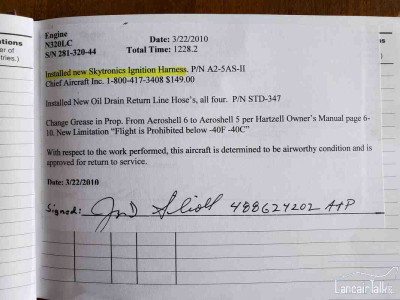 tions
er of
tries.)
Engine
N320LC
S/N 281-320-44
Date: 3/22/2010
Total Time: 1228.2
Installed new Skytronics Ignition Harness. P/N A2-5AS-II
Chief Aircraft Inc. 1-800-417-3408 $149.00
Installed New Oil Drain Return Line Hose's, all four. P/N STD-347
Change Grease in Prop. From Aeroshell 6 to Aeroshell 5 per Hartzell Owner's Manual page 6-
10. New Limitation "Flight is Prohibited below -40F -40C"
With respect to the work performed, this aircraft is determined to be airworthy condition and is
approved for return to service.
Date: 3/22/2010
Signed: 488624202 A&P
LancairTalks